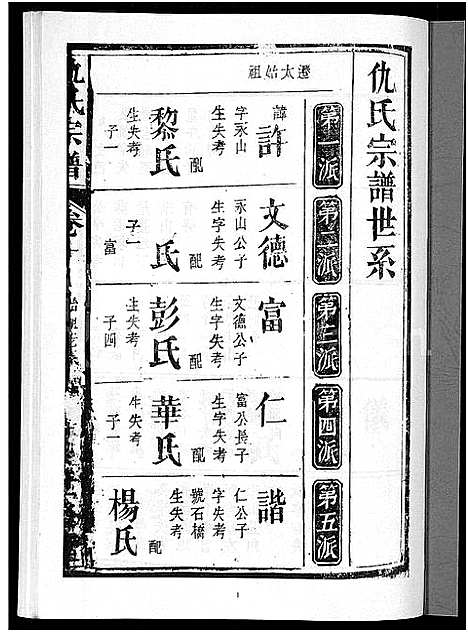 仇氏宗譜世系
遷太始祖
第一派
諱許
字永山
生失考
配
黎氏
生失考
子一
第二派
文德
永山公子
生字失考
配
氏
子一
富
第三派
富
文德公子
生字失考
配
彭氏
生失考
子四
第四派
仁
富公長子
生字失考
配
華氏
生失考
子一
第五派
諧
仁公子
字失考
號石橋
生失考
配
楊氏
仇氏宗譜
卷
1